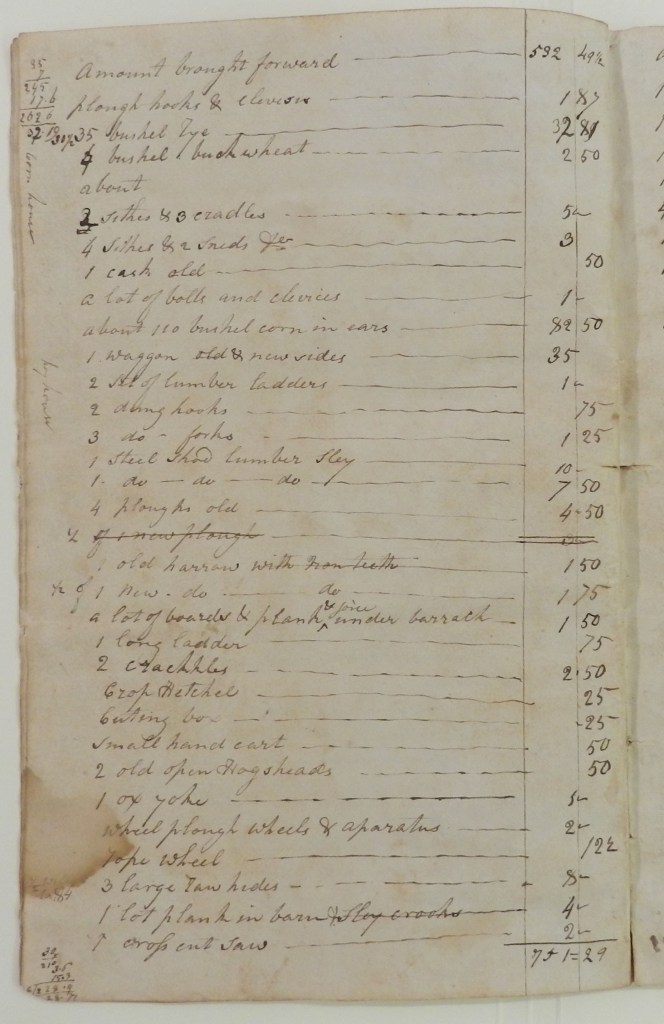 Amount brought forward 532 49½
plough hooks & clevises 1 87
35 bushel rye 32 81
4 bushel buckwheat 2 50
about
2 Sithes & 3 cradles 5-
4 Sithes & 2 Sneds &c 3
1 cask old 50
a lot of bolts and clevices 1-
about 110 bushel corn in ears 82 50
1 waggon old & new sides 35
2 set of lumber ladders 1-
2 dung hooks 75
3 do - forks 1 25
1 Steel Shod lumber Sley 10-
1- do - do - do - 7 50
4 ploughs old 4-50
½ of 1 new plough
1 old harrow with Iron teeth 1 50
½ of 1 new - do do 1 75
a lot of boards & plank & under barrack 1 50
1 long ladder 75
2 Crackkles 2 50
Crop Hetchel 25
Cuting box 25
Small hand cart 50
2 old open Hogsheads 50
1 ox yoke 5-
wheel plough wheels & aparatus 2-
rope wheel 12½
3 large raw hides 8-
1 lot plank in barn & Sley crooks 4-
1 cross cut saw 2-
751=29
corn house
by house